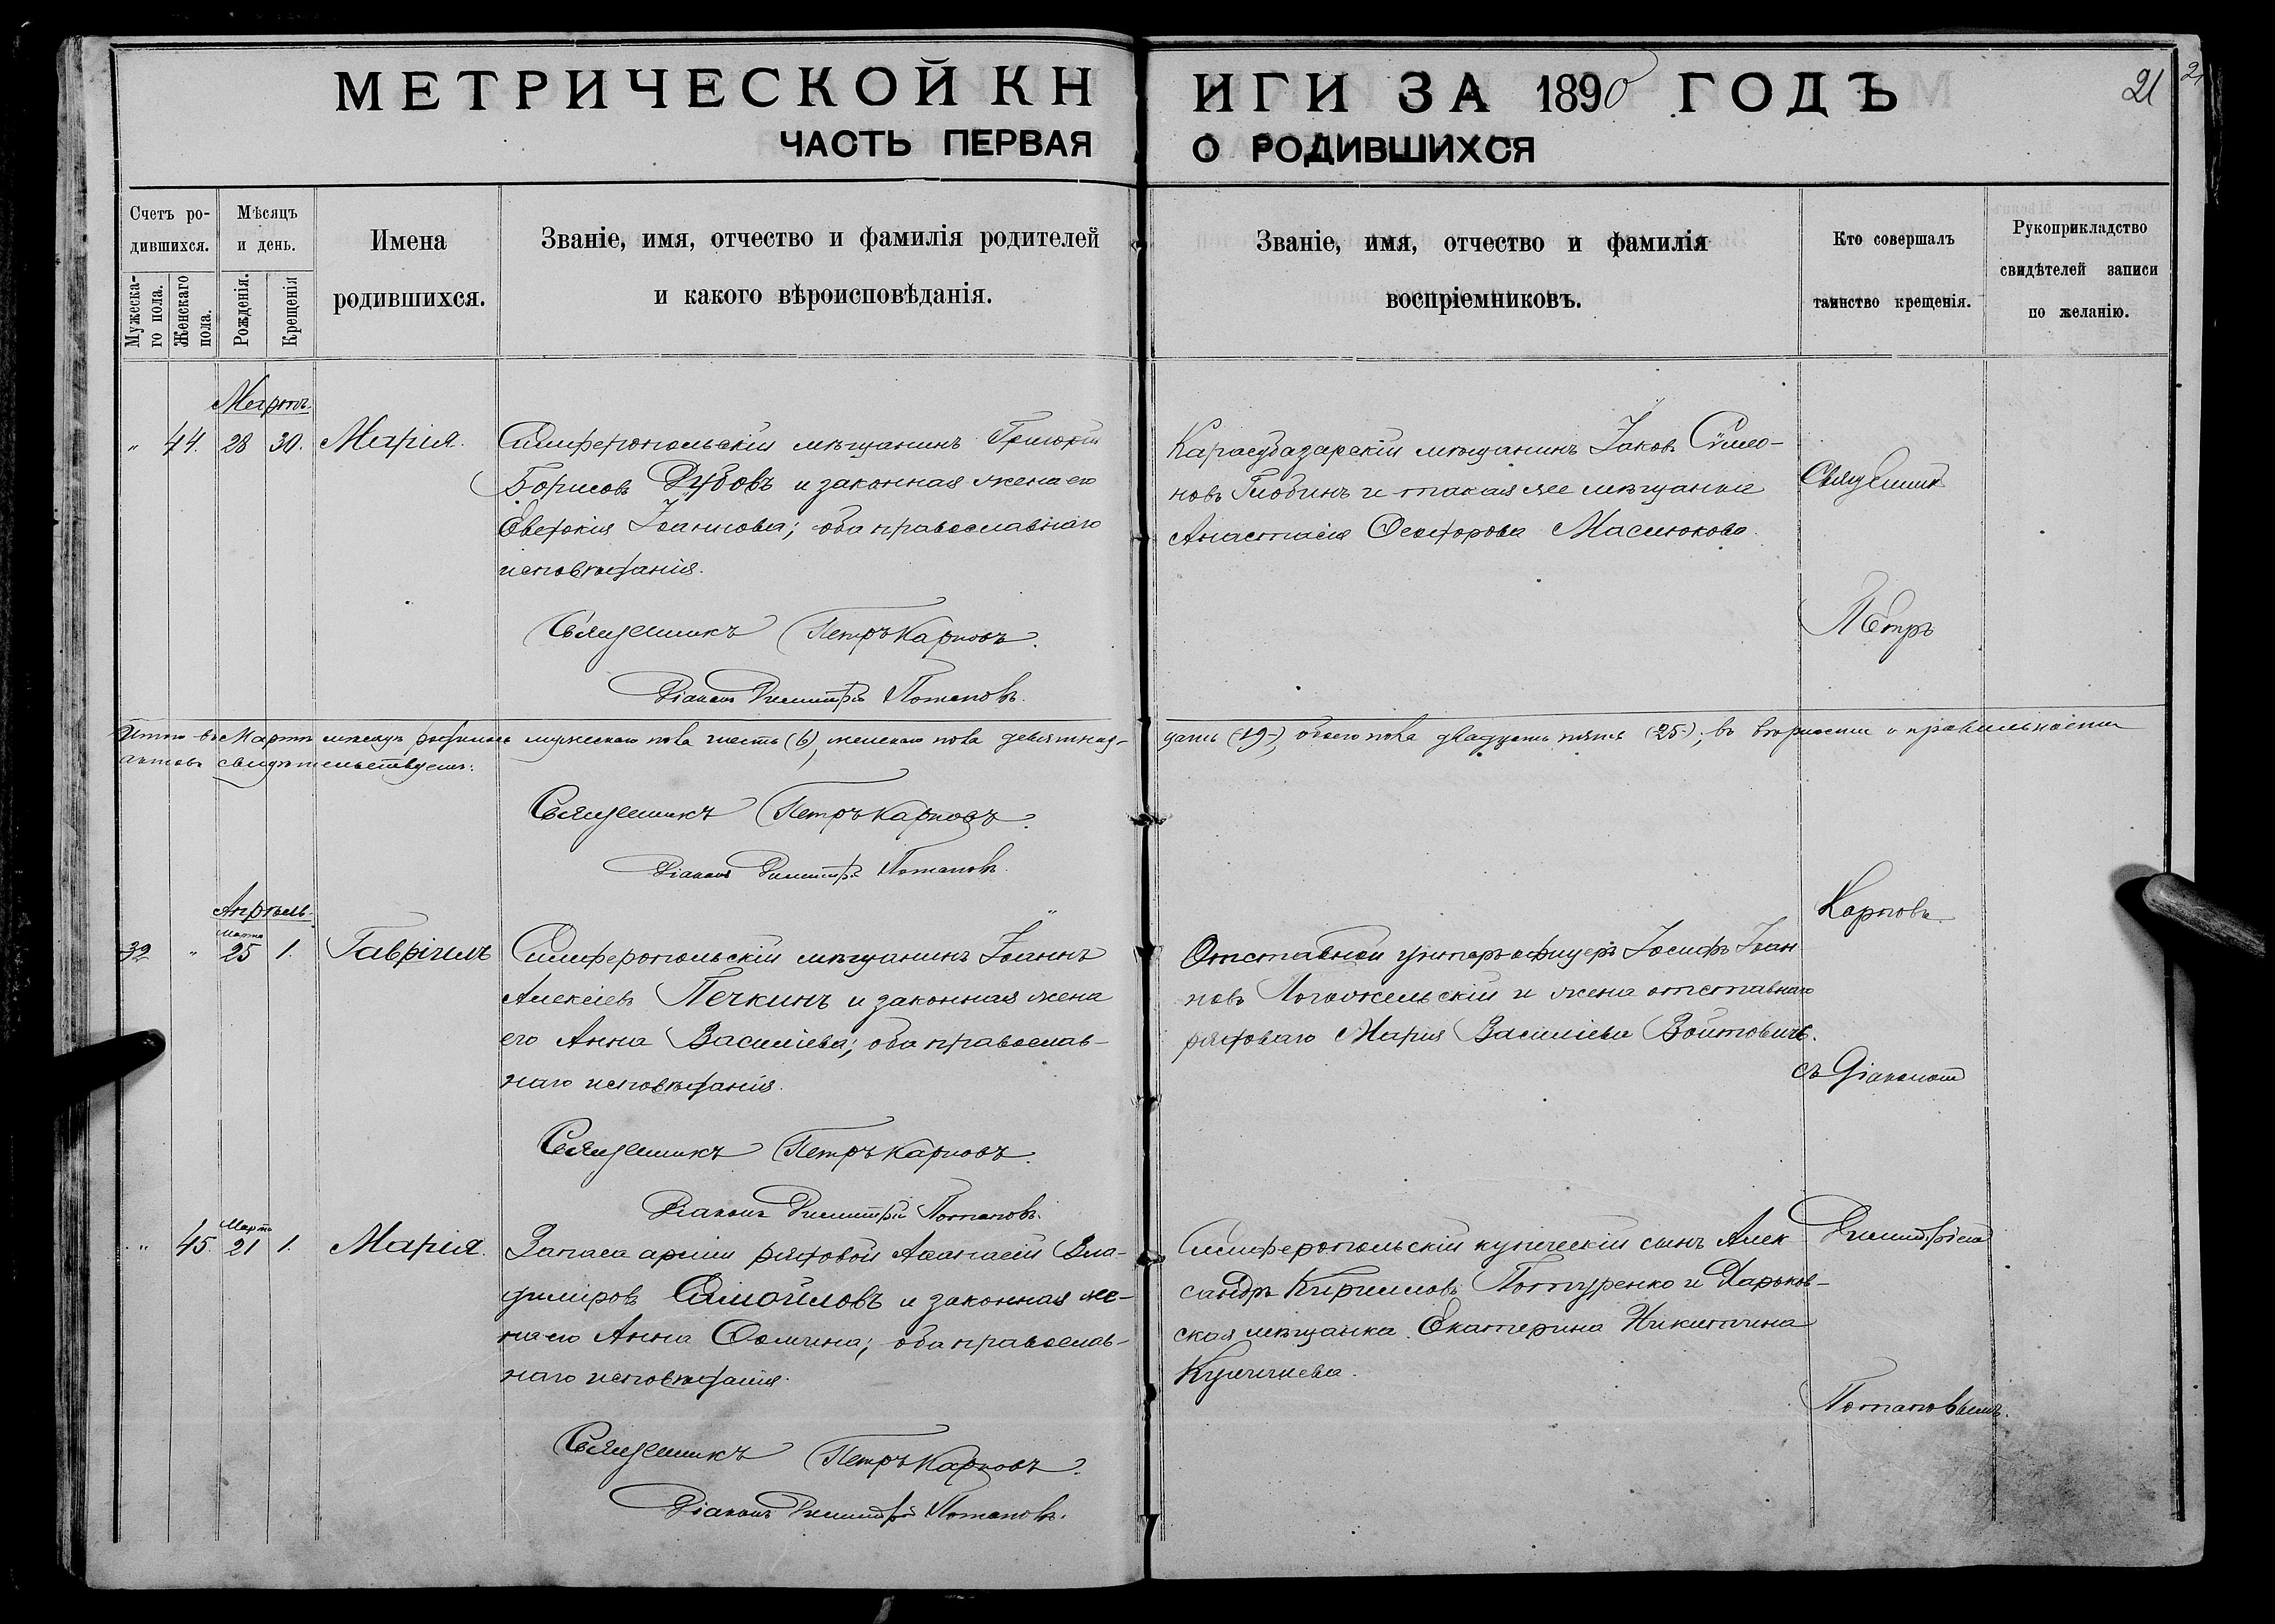 МЕТРИЧЕСКОЙ КНИГИ ЗА 1890 ГОДЪ
21
ЧАСТЬ ПЕРВАЯ О РОДИВШИХСЯ
Счетъ ро-
дившихся.
Мужеска-
го пола.
Женскаго
пола.
Мѣсяцъ
и день.
Рожденія.
Крещенія
Имена
родившихся.
Званіе, имя, отчество и фамилія родителей
и какого вѣроисповѣданія.
Званіе, имя, отчество и фамилія
воспріемниковъ.
Кто совершалъ
таинство крещенія.
Рукоприкладство
свидѣтелей записи
по желанію.
Мартъ.
" 44. 28 30. Марія.
Симферопольскій мѣщанинъ Григорій
Борисовъ Дубовъ и законная жена его
Евдокія Іоаннова; оба православнаго
исповѣданія.
Священникъ Петръ Карповъ.
Діаконъ Димитрій Потаповъ.
Карасубазарскій мѣщанинъ Іаковъ Симео-
новъ и такая же мѣщанка
Анастасія Ѳеодорова Маснюкова.
Священникъ
Петръ
Итого въ Мартѣ мѣсяцѣ родилось мужескаго пола шесть (6), женскаго пола девятнад-
цать (19), обоего пола двадцать пять (25); въ вѣрности и правильности
актовъ свидѣтельствуемъ:
Священникъ Петръ Карповъ.
Діаконъ Димитрій Потаповъ.
Апрѣль.
Марта
32 " 25 1. Гавріилъ
Симферопольскій мѣщанинъ Іоаннъ
Алексіевъ Печкинъ и законная жена
его Анна Василіева; оба православ-
наго исповѣданія.
Священникъ Петръ Карповъ.
Діаконъ Димитрій Потаповъ.
Отставной унтеръ-офицеръ Іосифъ Іоан-
новъ и жена отставнаго
рядоваго Марія Василіева Войтовичъ.
Карповъ
съ Діакономъ
Марта
" 45. 21 1. Марія.
Запаса арміи рядовой Аѳанасій Вла-
диміровъ Самойловъ и законная же-
на его Анна Ѳомина; оба православ-
наго исповѣданія.
Священникъ Петръ Карповъ.
Діаконъ Димитрій Потаповъ.
Симферопольскій купеческій сынъ Алек
сандръ Кирилловъ Потуренко и Харьков-
ская мѣщанка Екатерина Никитина
Димитріемъ
Потаповымъ.